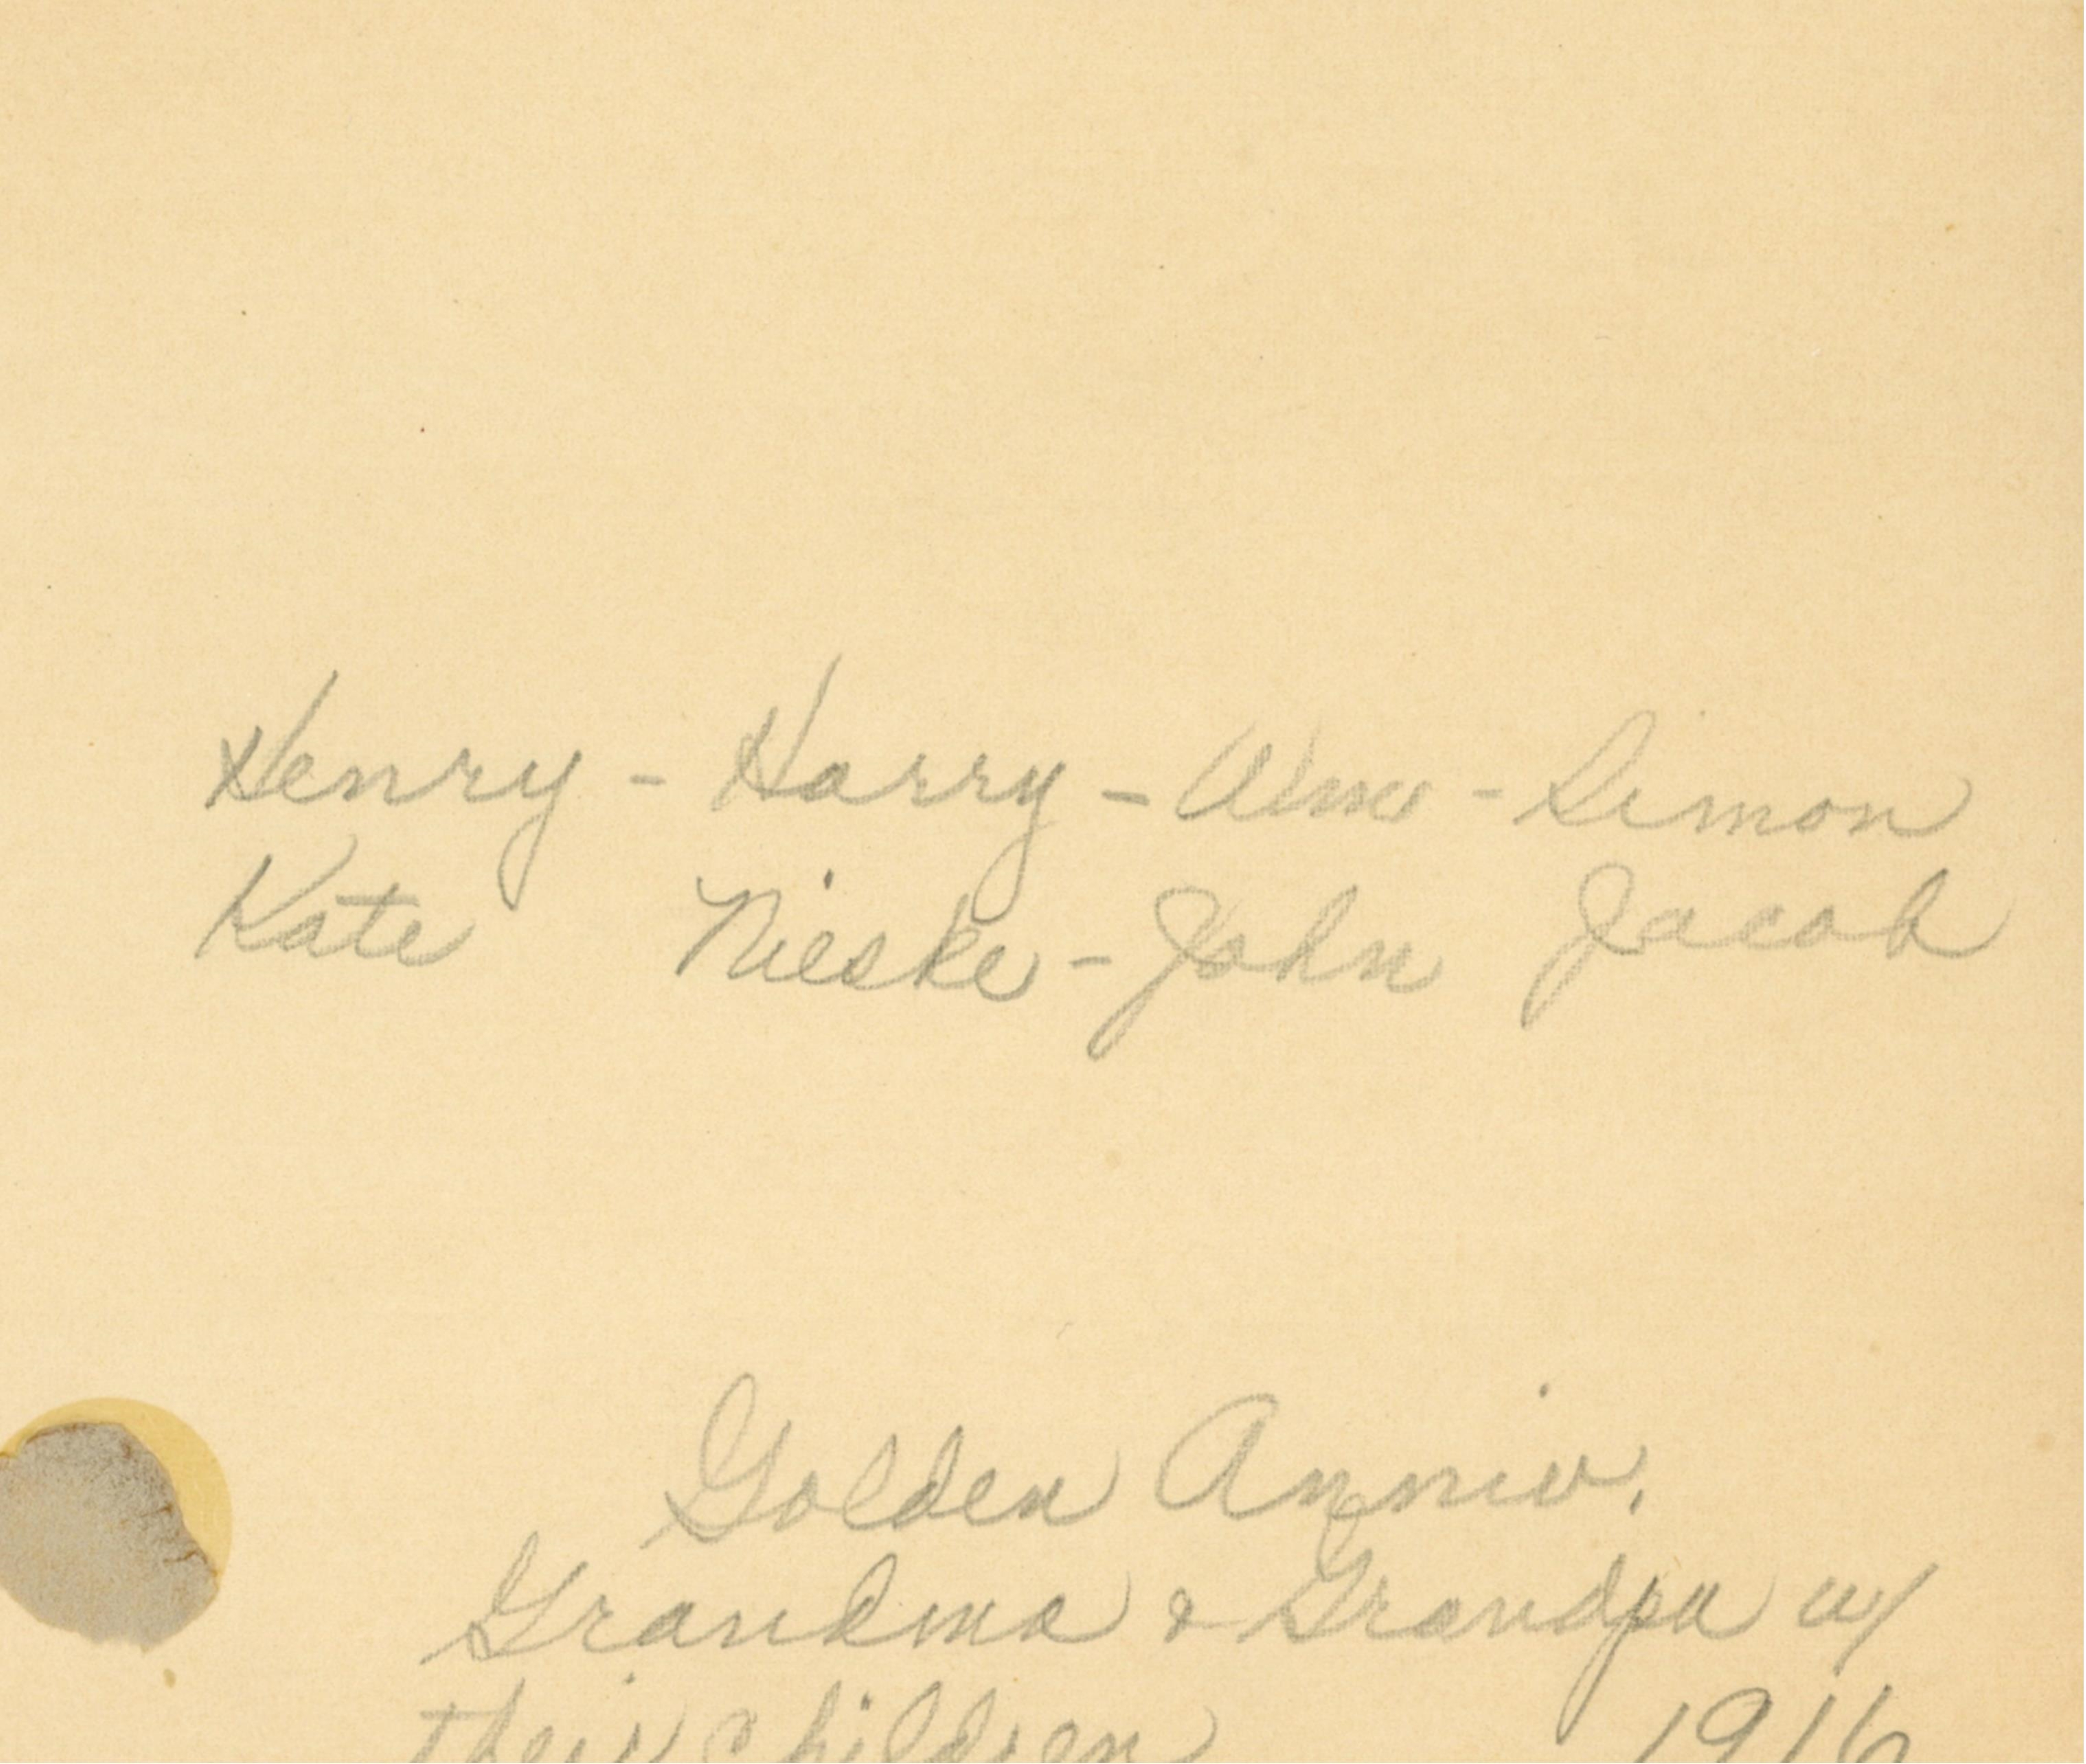 Henry - Harry - Wm - Simon
Kate Nieske - John Jacob
Golden Anniv.
Grandma & Grandpa w/
their children 1916